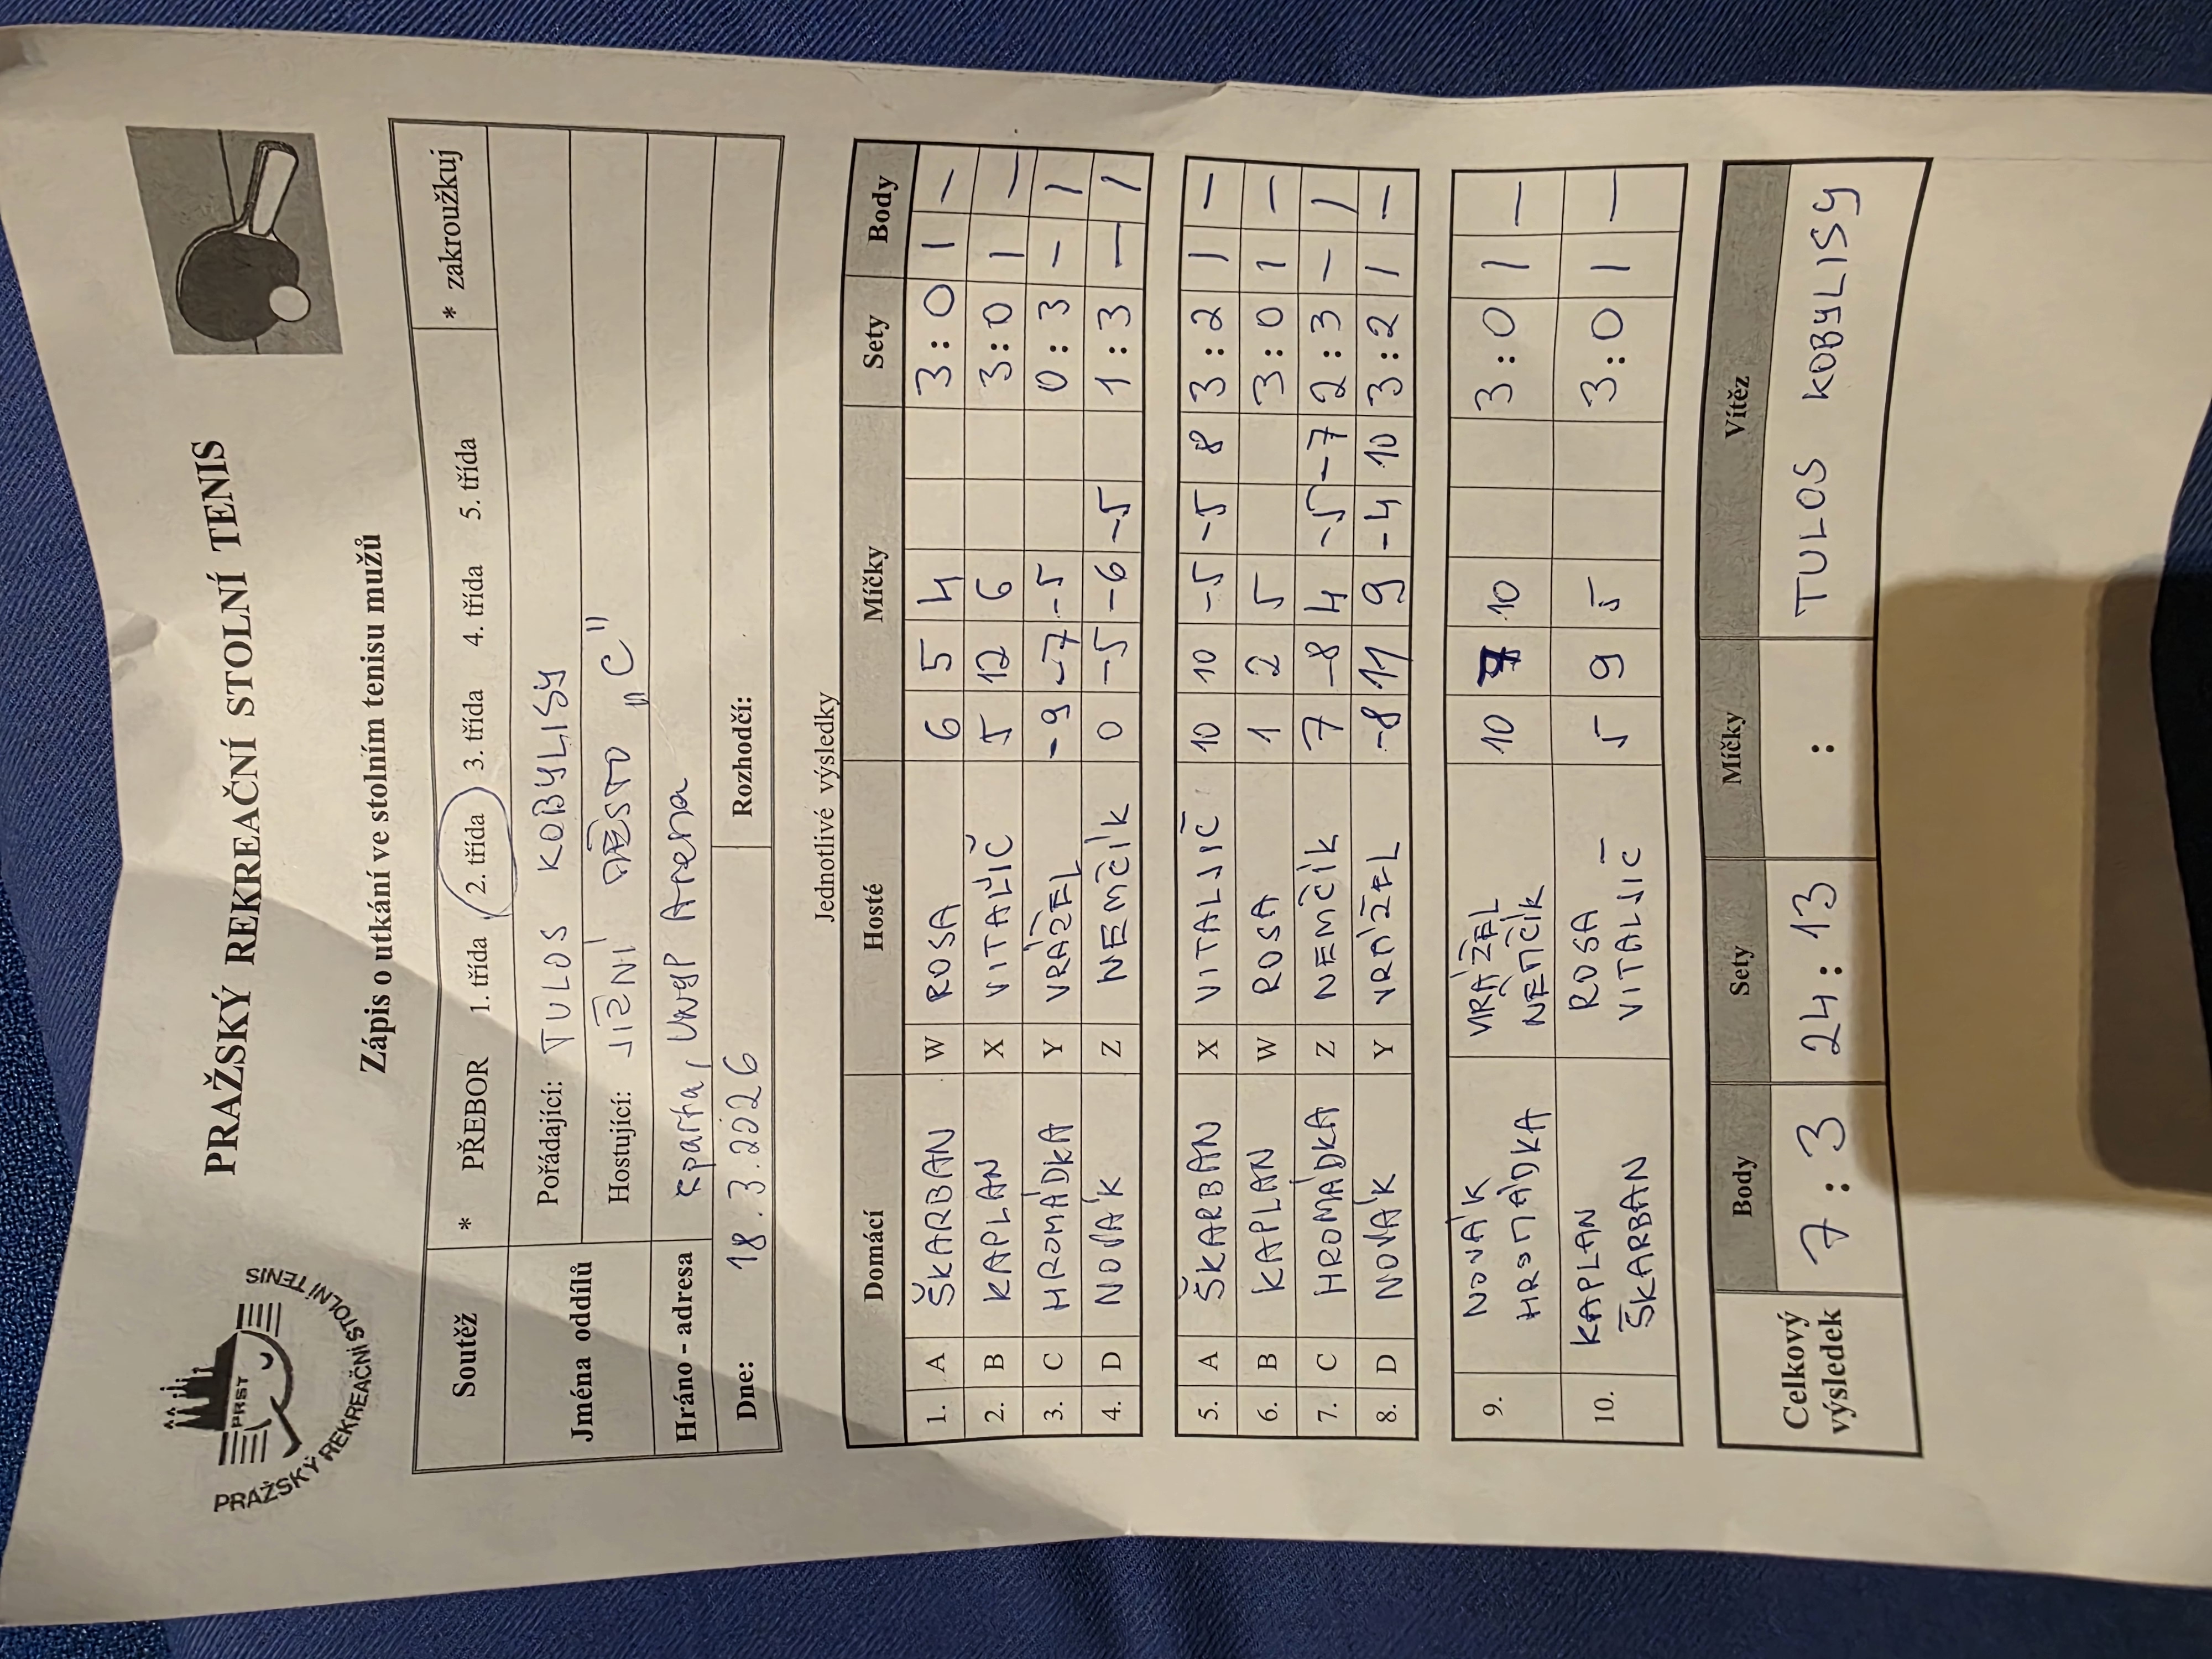 PRAŽSKÝ REKREAČNÍ STOLNÍ TENIS
PRST
PRAŽSKÝ REKREAČNÍ STOLNÍ TENIS
Zápis o utkání ve stolním tenisu mužů
Soutěž * PŘEBOR 1. třída 2. třída 3. třída 4. třída 5. třída * zakroužkuj
Jména oddílů
Pořádající: TULOS KOBYLISY
Hostující: JIŽNÍ MĚSTO „C"
Hráno - adresa Sparta, Unyp Arena
Dne: 18.3.2026 Rozhodčí:
Jednotlivé výsledky
Domácí Hosté Míčky Sety Body
1. A ŠKARBAN W ROSA 6 5 4 3:0 1 –
2. B KAPLAN X VITALIČ 5 12 6 3:0 1 –
3. C HROMÁDKA Y VRÁŽEL -9 -7 -5 0:3 – 1
4. D NOVÁK Z NEMČÍK 0 -5 -6 -5 1:3 – 1
5. A ŠKARBAN X VITALJIČ 10 10 -5 -5 8 3:2 1 –
6. B KAPLAN W ROSA 1 2 5 3:0 1 –
7. C HROMÁDKA Z NEMČÍK 7 -8 4 -5 -7 2:3 – 1
8. D NOVÁK Y VRÁŽEL -8 11 9 -4 10 3:2 1 –
9. NOVÁK HROMÁDKA VRÁŽEL NEMČÍK 10 7 10 3:0 1 –
10. KAPLAN ŠKARBAN ROSA VITALJIČ 5 9 5 3:0 1 –
Celkový výsledek
Body Sety Míčky Vítěz
7:3 24:13 : TULOS KOBYLISY